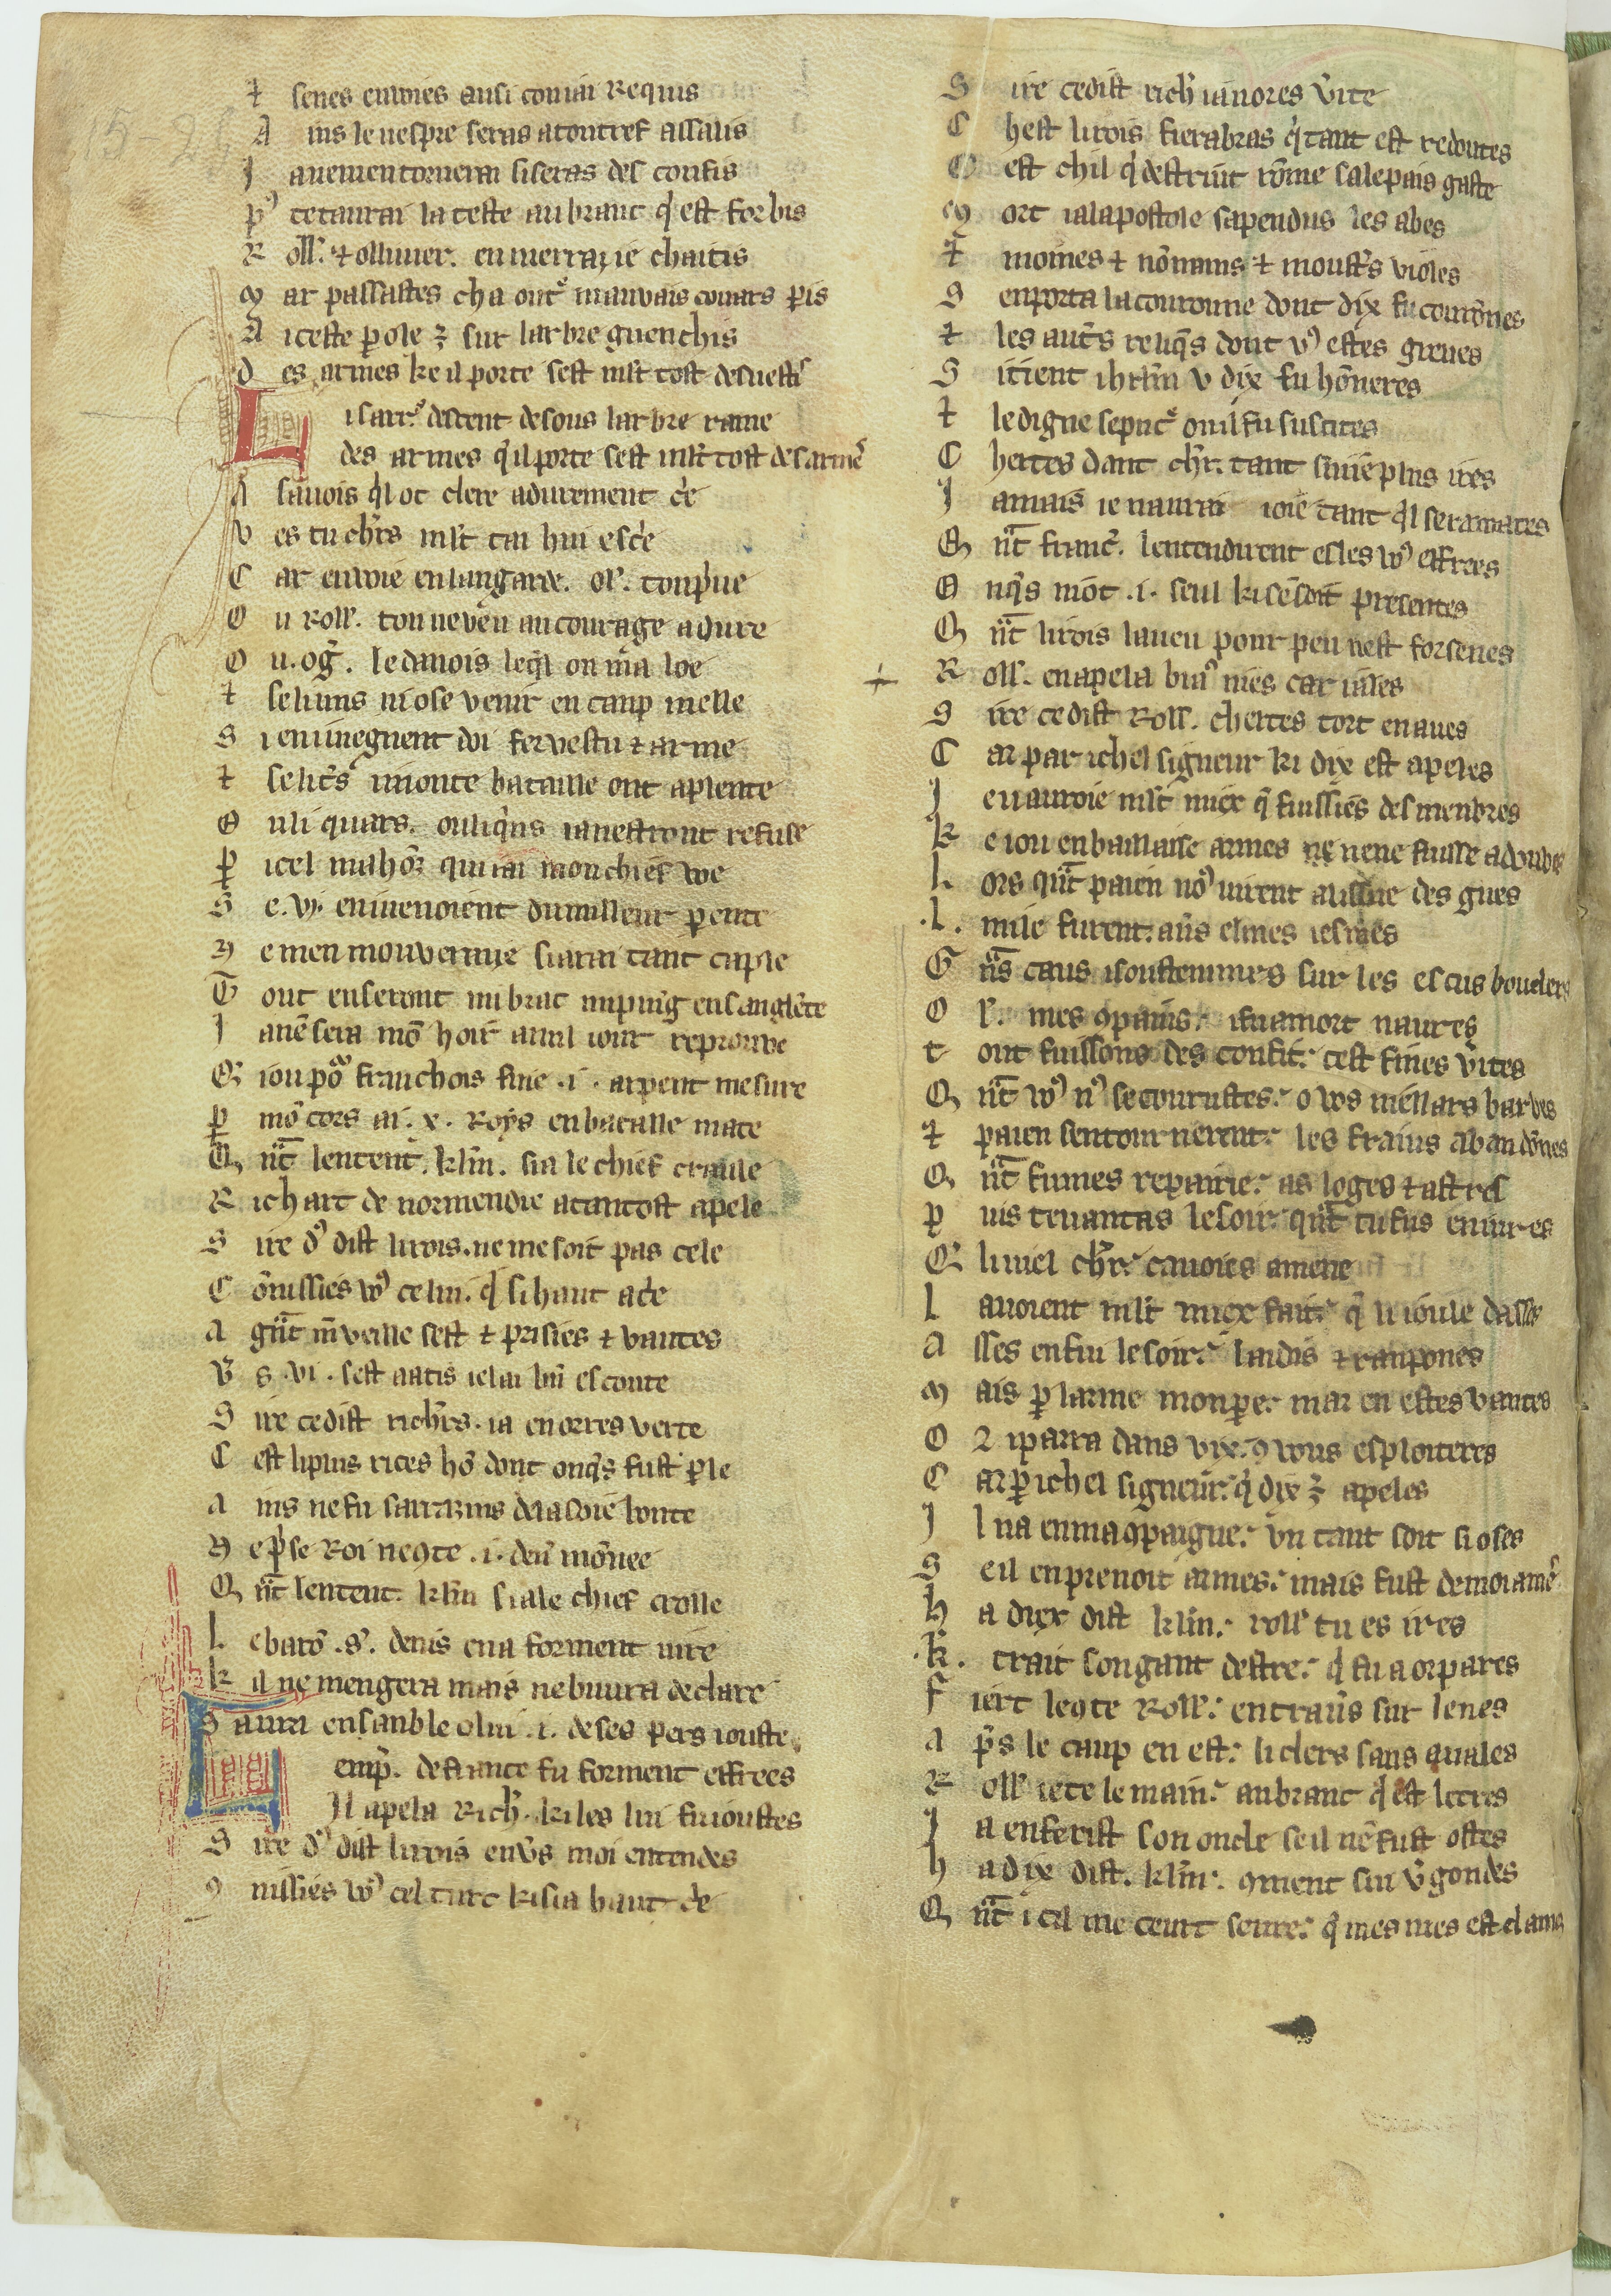 ⁊ senes enuoies ausi con iai Requis
A ins le uespre seras a toutref assalis
J a nemen tornerai si seras desconfis
p᷒ te taurai la teste au branc q̓ est forbis
R oll'. ⁊ olliuier. en merrai ie chaitis
M ar passastes cha out͛ mauvais couars ꝑis
A iceste ꝑole ꝫ sur larbre guenchis
D es armes ke il porte sest ml't tost desuesti
L i sarr᷒. descent desous larbre rame
des armes q̓l porte sest ml't tost desarme͛
A sa uois q̓l ot clere a durement c̓e
V es tu ch̓rs ml't tai hui esc̓e
C ar enuoie en langarde. ol'. ton p̓ue
O u Roll'. ton neveu au courage adure
O u. og̓. le danois leq̓l on m̄a loe
⁊ se li uns ni ose venir en canp melle
S i en uiegnent doi fervestu ⁊ arme
⁊ se li t̓s u nonte bataille ont aplente
O u li quars. ou li q̓ns ia nestront refuse
ꝑ icel mahō qui iai mon chief voe
S e .vj. en i uenoient du milleur ꝑente
N e men mouveraije siarai tant caple
T out en seront mi brac mi puig̓ ensangle̅te
J a ne̅ sera mo̅ hoir a nul iour reprouve
Q̓ iou po͛ franchois fuie .i. arpent mesure
ꝑ mo̅ cors ai .x. Roys en bataille mate
Q n̅t lentent. kl'm. sia le chief crolle
R ichart de normendie a tantost apele
S ire d᷒ dist li rois. ne me soit pas cele
C o̅nissies vo᷒ celui. q̓ si haut a c̓e
A gn̅t m̓veille sest ⁊ prisies ⁊ vantes
V̓ s .vi. sest aatis ie lai bn̅ escoute
S ire ce dist rich̓rs. ia en orres verte
C est li plus rices ho̅ dont onq̓s fust ꝑle
A ins ne fu sarrazins de la soie bonte
N e p̓se Roi ne ꝯte .i. den̓ mo̅nee
Q n̅t lentent. kl'm sia le chief crolle
L e baro̅ .s'. denis en a forment iure
k il ne mengera mais ne buura de clare
S aura ensanble olui .i. de ses pers iouste
L emp̓. de france fu forment effrees
Il apela Rich̓. ki les lui fu ioustes
S ire d᷒ dist li rois en v̓s moi entendes
ꝯ nissies vo᷒ cel turc ki sia haut c̓e
S ire ce dist rich̓ ia nores v̓ite
C hest li rois fierabras q̓ tant est redoutes
C est chil q̓ destruit ro̅me sa le pais gaste
M ort ia lapostole sa pendus les abes
⁊ moines ⁊ no̅nains ⁊ moust̓s violes
S enporta la couronne dont dix fu couro̅nes
⁊ les aut̓s reliq̓s dont v᷒ estes greues
S i tient ih'rl'm v dix fu ho̅neres
⁊ le digne sepuc͛ ou il fu suscites
C hertes dant ch̓r. tant sui ie plus ires
J amais ie naurai ioie tant q̓l sera mates
Q n̅t franc̓. lentendirent es les vo᷒ effrees
O nq̓s not .i. seul ki se̅ soit presentes
Q n̅t li rois la ueu pour peu nest forsenes
R oll'. en apela biau᷒ nies car i ales
S ire ce dist Roll'. chertes tort en aues
C ar par ichel signeur ki dix est apeles
J en auroie ml't miex q̓ fuissies desmenbres
k e iou en baillaisse armes ne nene fuisse adoubes
L ors qn̅t paien no᷒ uirent a lissue des gues
.L. mile furent. aus elmes iesmes
G n̅s caus i soustenimes sur les escus boucles
O l'. mes ꝯpains. i fu a mort naures
T out fuissons desconfit. cest fines v̓ites
Q n̅t vo᷒ n᷒ secourustes. o vos viellars barbes
⁊ paien sentournerent. les frains abando̅nes
Q n̅t fumes repairie. as loges ⁊ as tres
P uis te vantas le soir. qn̅t tu fus enivres
Q̓ li uiel ch̓r. cavoies amene
L auoient ml't miex fait. q̓ li ioule dasses
A sses en fui le soir. laidis ⁊ ranpones
M ais ꝑ larme mon pe̓. mar en estes vantes
O r i parra dans vix. ꝯ vous esploiteres
C ar ꝑ ichel signeur. q̓ dix ꝫ apeles
J l na en ma ꝯpaigne. vn tant soit si oses
S eil en prenoit armes. mais fust de moi ame͛
h a diex dist kl'm. roll' tu es ires
.k. trait son gant destre. q̓ fu a or pares
F iert le ꝯte Roll'. en trau̓s sur le nes
A p̓s le caup en est. li clers sans auales
R oll' iete le main. au branc q̓ est letres
J a en ferist son oncle se il ne̅ fust ostes
h a dix dist. kl'm. ꝯment sui v̓gondes
Q n̅t i cil me ceurt seure. q̓ mes nies est clames